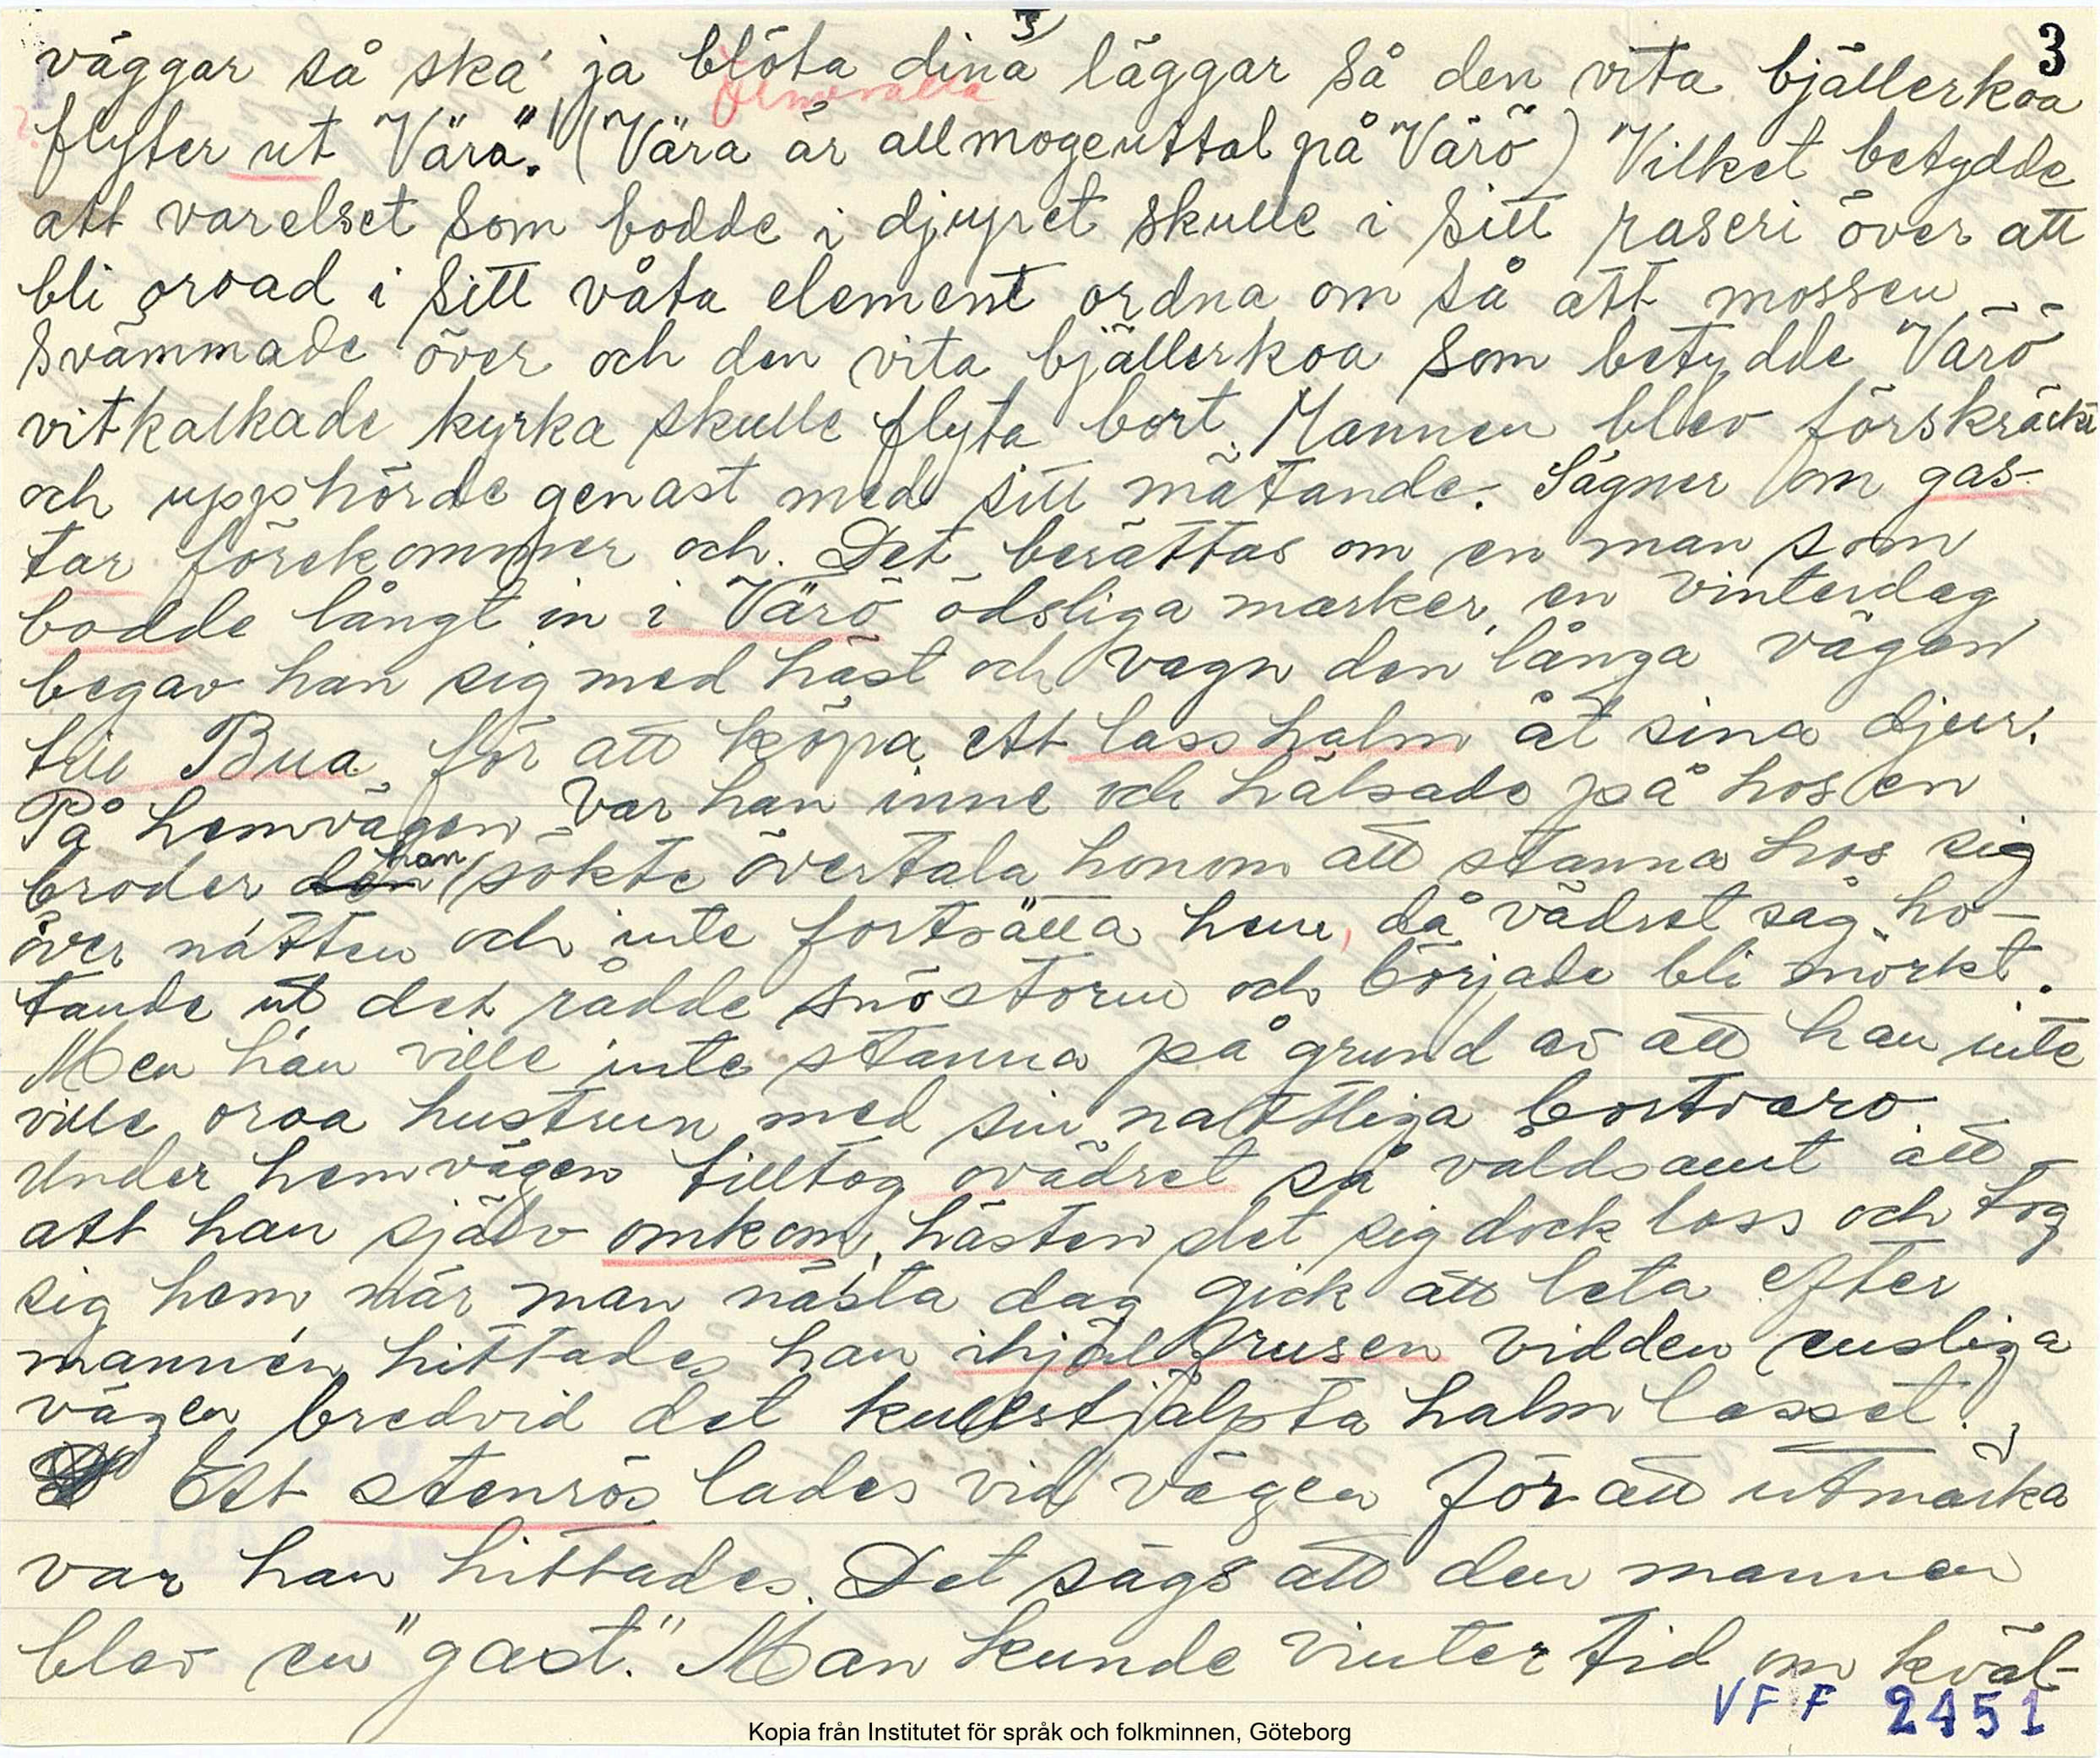 3
3
väggar så ska' ja blöta dina läggar så den vita bjällerkoa
flyter ut "Värä". ("Vära är allmogeuttal på "Värö") Vilket betydde
att varelset som bodde i djupet skulle i sitt raseri över att
bli oroad i sitt våta element ordna om så att mossen
svämmade över och den vita bjällerkoa som betydde "Värö"
vitkalkade kyrka skulle flyta bort. Mannen blev förskräckt
och upphörde genast med sitt mätande. Sägner om gas-
tar förekommer och. Det berättas om en man som
bodde långt in i Värö ödsliga marker, en vinterdag
begav han sig med häst och vagn den långa vägen
till Bua för att köpa ett lass halm åt sina djur.
På hemvägen var han inne och hälsade på hos en
broder den han sökte övertala honom att stanna hos sig
över natten och inte fortsätta hem, då vädret såg ho-
tande ut det rådde snöstorm och började bli mörkt.
Men han ville inte stanna på grund av att han inte
ville oroa hustrun med sin nattliga bortvaro
Under hemvägen tilltog ovädret så våldsamt att
att han själv omkom, hästen slet sig dock loss och tog
sig hem när man nästa dag gick att leta efter
mannen hittades han ihjälfrusen vidden ensliga
vägen bredvid det kullstjälpta halmlasset.
Ett stenrös lades vid vägen för att utmärka
var han hittades. Det sägs att den mannen
blev en "gast." Man kunde vintertid om kväl-
VFF 2451
Kopia från Institutet för språk och folkminnen, Göteborg